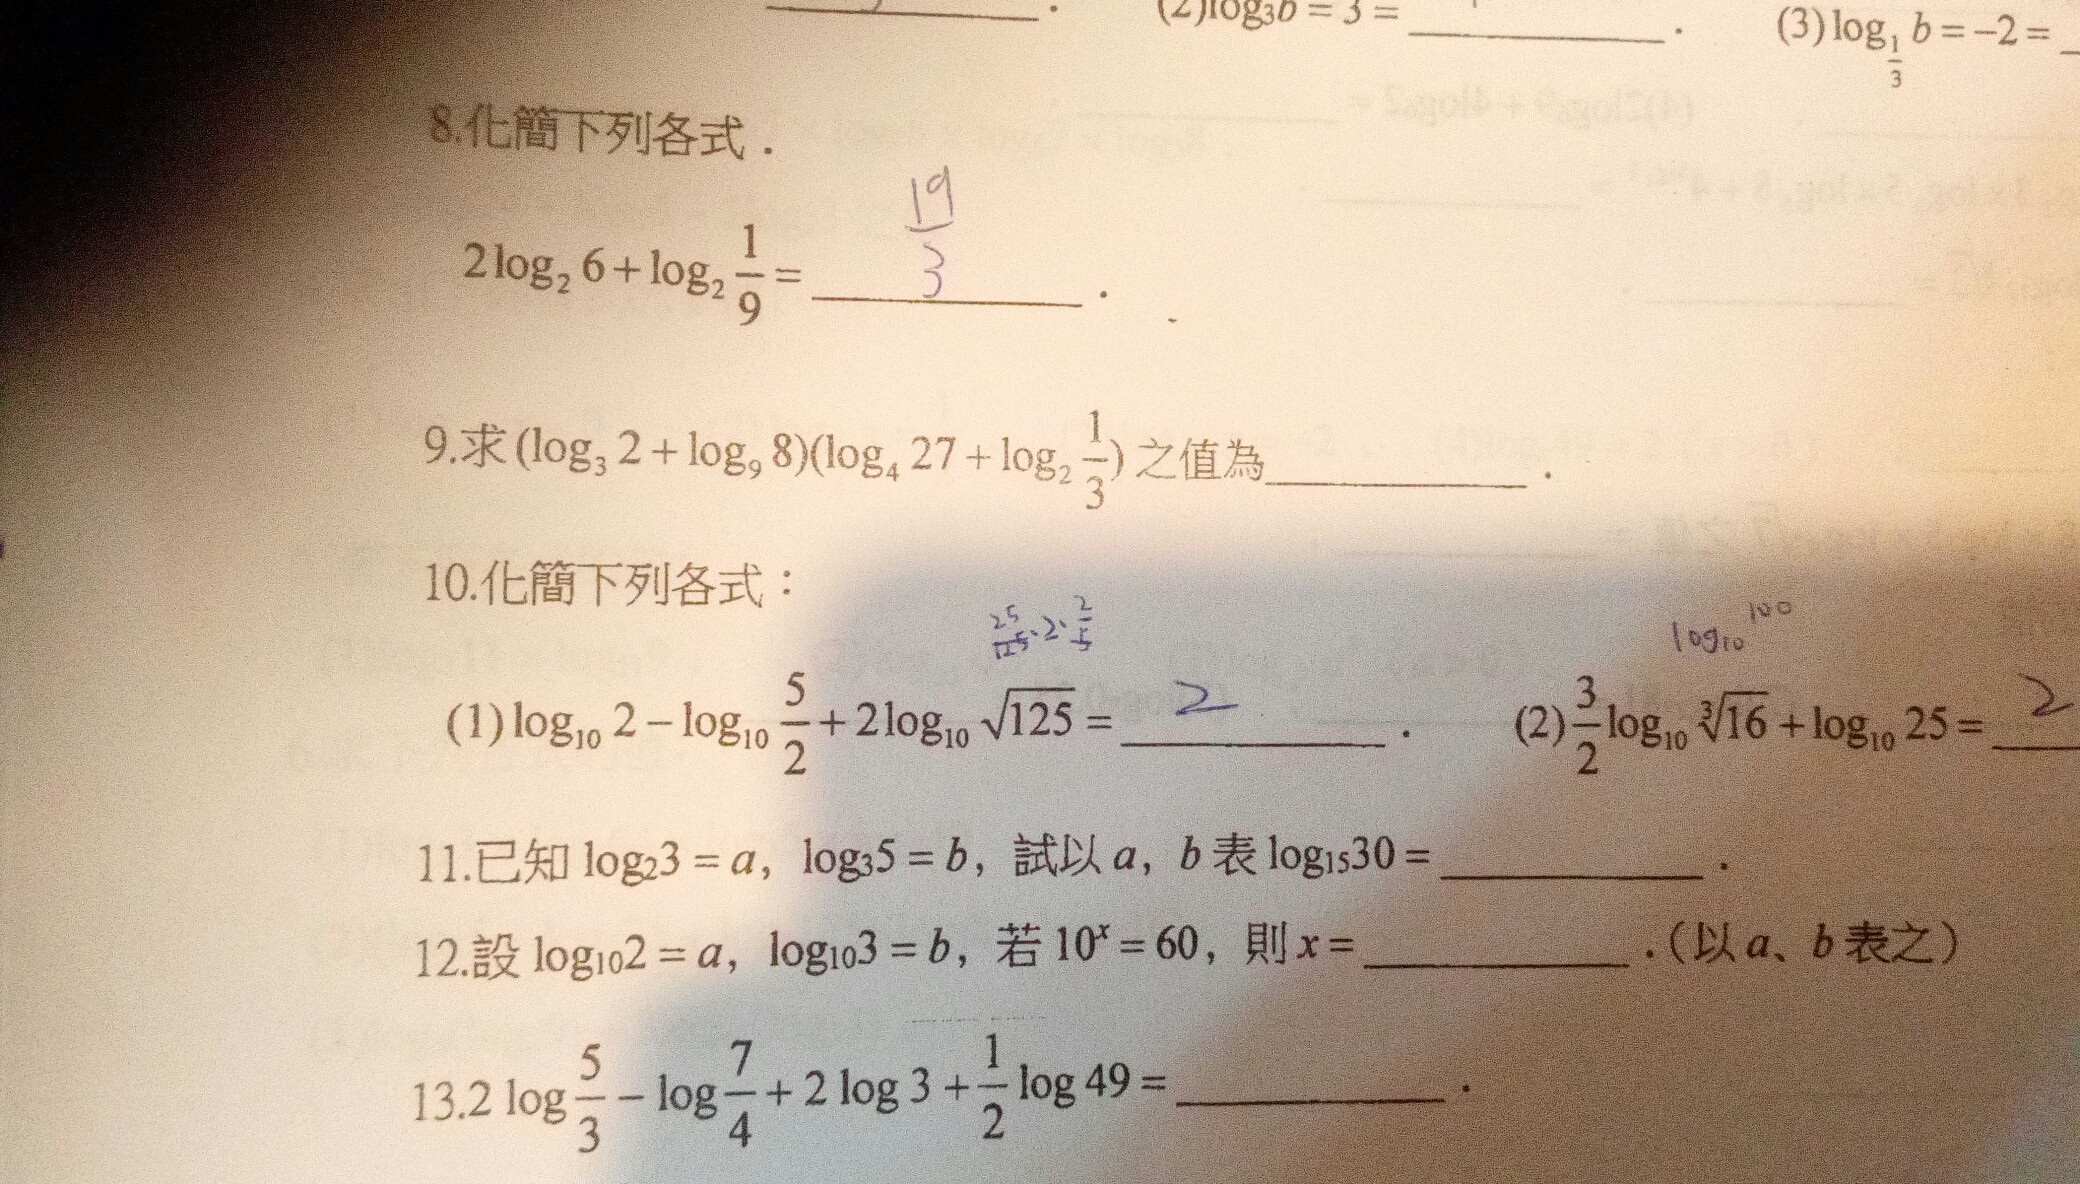 (2)log₃b = 3 = ________. (3) log_{1/3} b = −2 =
8.化簡下列各式．
2 log₂ 6 + log₂ 1/9 = 19/3 .
9.求 (log₃ 2 + log₉ 8)(log₄ 27 + log₂ 1/3) 之值為________．
10.化簡下列各式：
25/125 · 2 · 2/5 log₁₀ 100
(1) log₁₀ 2 − log₁₀ 5/2 + 2 log₁₀ √125 = 2 . (2) 3/2 log₁₀ ∛16 + log₁₀ 25 = 2
11.已知 log₂3 = a，log₃5 = b，試以 a，b 表 log₁₅30 = ________．
12.設 log₁₀2 = a，log₁₀3 = b，若 10ˣ = 60，則 x = ________．（以 a、b 表之）
13.2 log 5/3 − log 7/4 + 2 log 3 + 1/2 log 49 = ________．